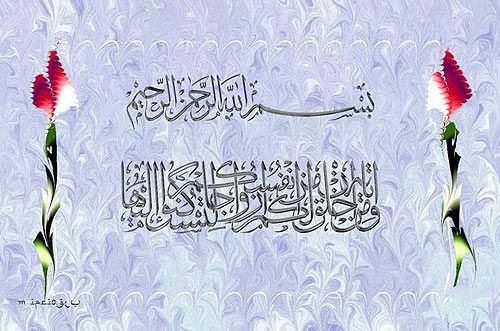 بسم الله الرحمن الرحيم
ومن آياته أن خلق لكم من أنفسكم أزواجا لتسكنوا إليها